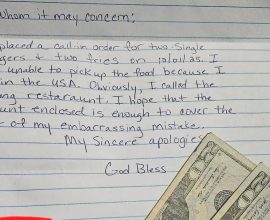 whom it may concern:
placed a call-in order for two single
gers & two fries on 10/01/25. I
unable to pick up the food because I
in the USA. Obviously, I called the
ng restaraunt. I hope that the
unt enclosed is enough to cover the
of my embarrassing mistake.
My Sincere apologie
God Bless
20
20